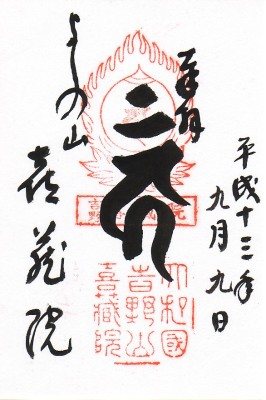 奉拝
平成十三年
九月九日
よしの山
喜蔵院
大和國
吉野山
喜蔵院